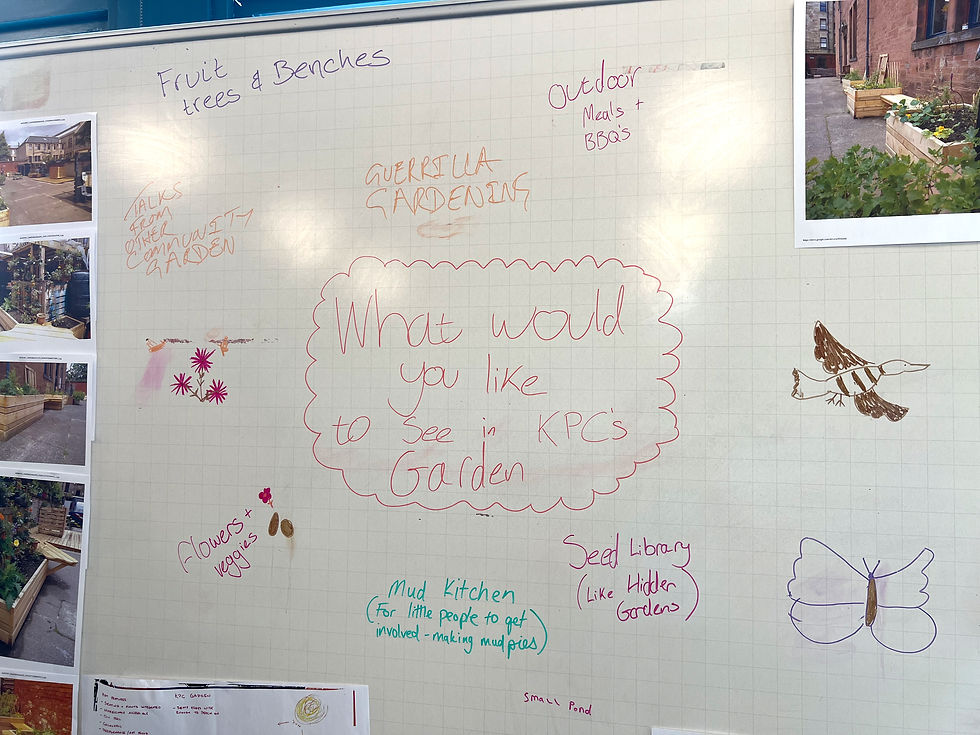 Fruit
trees & Benches
Outdoor
Meals +
BBQ's
GUERRILLA
GARDENING
TALKS
FROM
OTHER
COMMUNITY
GARDEN
What would
you like
to See in KPC's
Garden
flowers +
veggies
Seed Library
(Like Hidden
Gardens)
Mud Kitchen
(For little people to get
involved - making mud pies)
Small Pond
KPC GARDEN